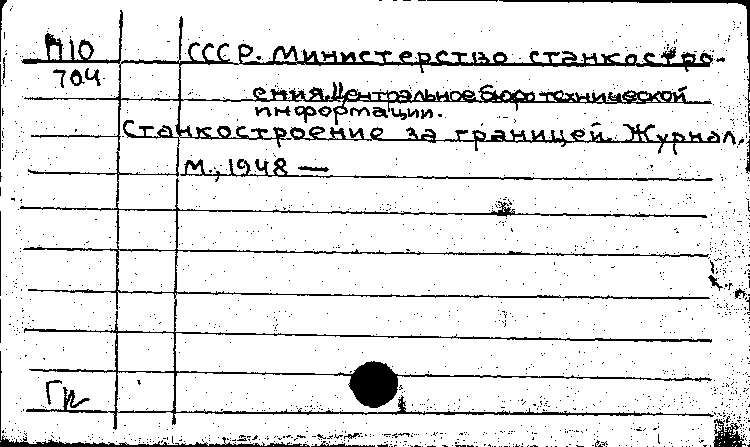 П10 СССР. Министерство станкостро-
704
ения. Центральное бюро технической
информации.
Станкостроение за границей. Журнал.
М., 1948 —